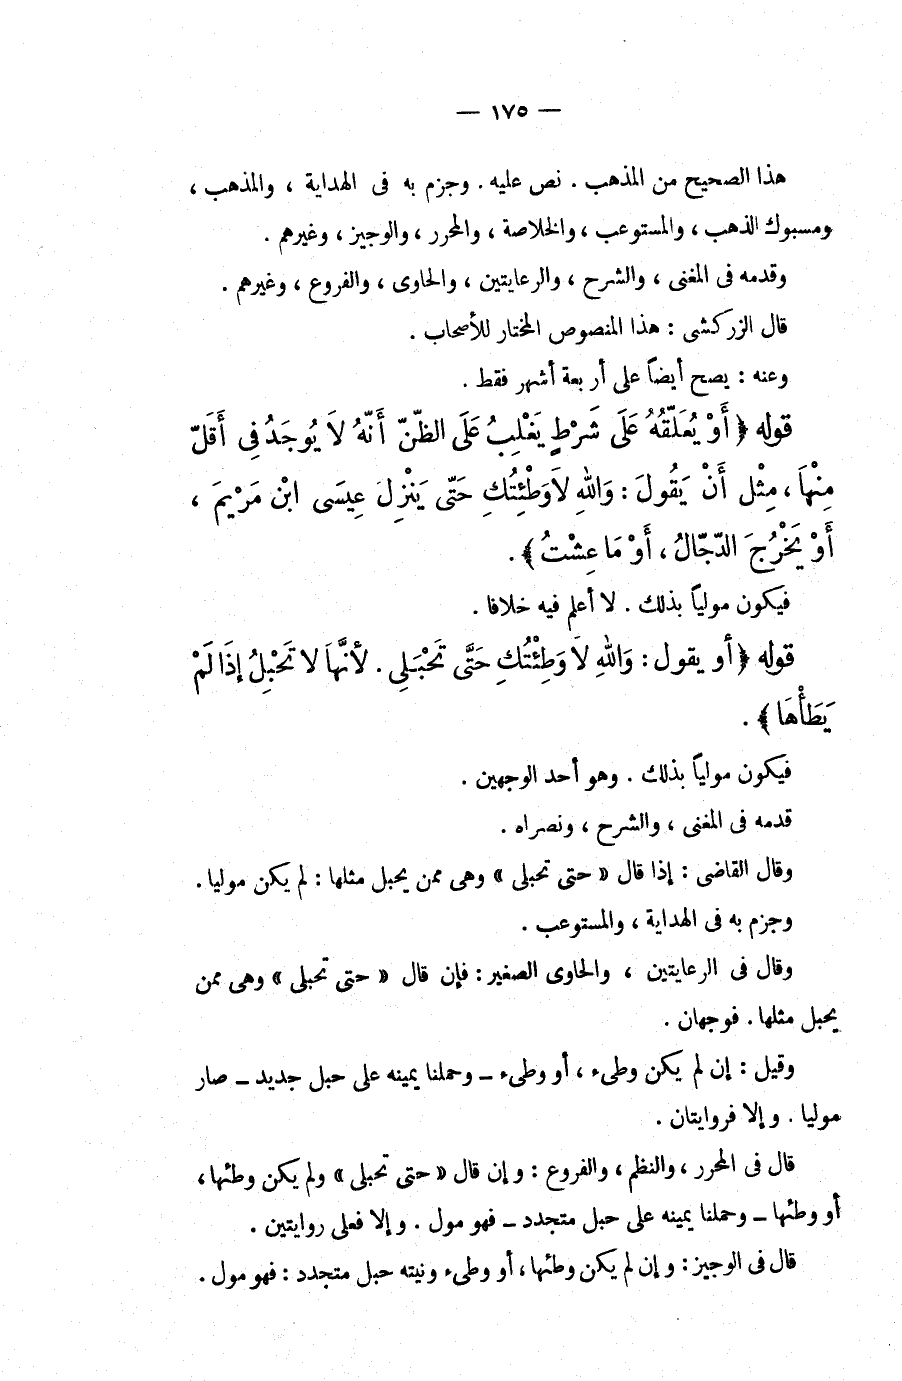 — ١٧٥ —
هذا الصحيح من المذهب . نص عليه . وجزم به فى الهداية ، والمذهب ،
ومسبوك الذهب ، والمستوعب ، والخلاصة ، والمحرر ، والوجيز ، وغيرهم .
وقدمه فى المغنى ، والشرح ، والرعايتين ، والحاوى ، والفروع ، وغيرهم .
قال الزركشى : هذا المنصوص المختار للأصحاب .
وعنه : يصح أيضاً على أربعة أشهر فقط .
قوله ﴿ أَوْ يُعَلِّقُهُ عَلَى شَرْطٍ يَغْلِبُ عَلَى الظّنّ أَنّهُ لاَ يُوجَدُ فِى أَقَلّ
مِنْهَا ، مِثْل أَنْ يَقُولَ : وَاللهِ لاَوَطِئْتُكِ حَتّى يَنْزِلَ عِيسَى ابْن مَرْيمَ ،
أَوْ يَخْرُجَ الدّجّالُ ، أَوْ مَا عِشْتُ ﴾ .
فيكون مولياً بذلك . لا أعلم فيه خلافا .
قوله ﴿ أو يقول : وَاللهِ لاَ وَطِئْتُكِ حَتَّى تَحْبَلِى . لأنَّهَا لا تَحْبِلُ إذَا لَمْ
يَطَأْهَا ﴾ .
فيكون مولياً بذلك . وهو أحد الوجهين .
قدمه فى المغنى ، والشرح ، ونصراه .
وقال القاضى : إذا قال « حتى تحبلى » وهى ممن يحبل مثلها : لم يكن موليا .
وجزم به فى الهداية ، والمستوعب .
وقال فى الرعايتين ، والحاوى الصغير : فإن قال « حتى تحبلى » وهى ممن
يحبل مثلها . فوجهان .
وقيل : إن لم يكن وطىء ، أو وطىء ــ وحملنا يمينه على حبل جديد ــ صار
موليا . وإلا فروايتان .
قال فى المحرر ، والنظم ، والفروع : وإن قال « حتى تحبلى » ولم يكن وطئها ،
أو وطئها ــ وحملنا يمينه على حبل متجدد ــ فهو مول . وإلا فعلى روايتين .
قال فى الوجيز : وإن لم يكن وطئها ، أو وطىء ونيته حبل متجدد : فهو مول .